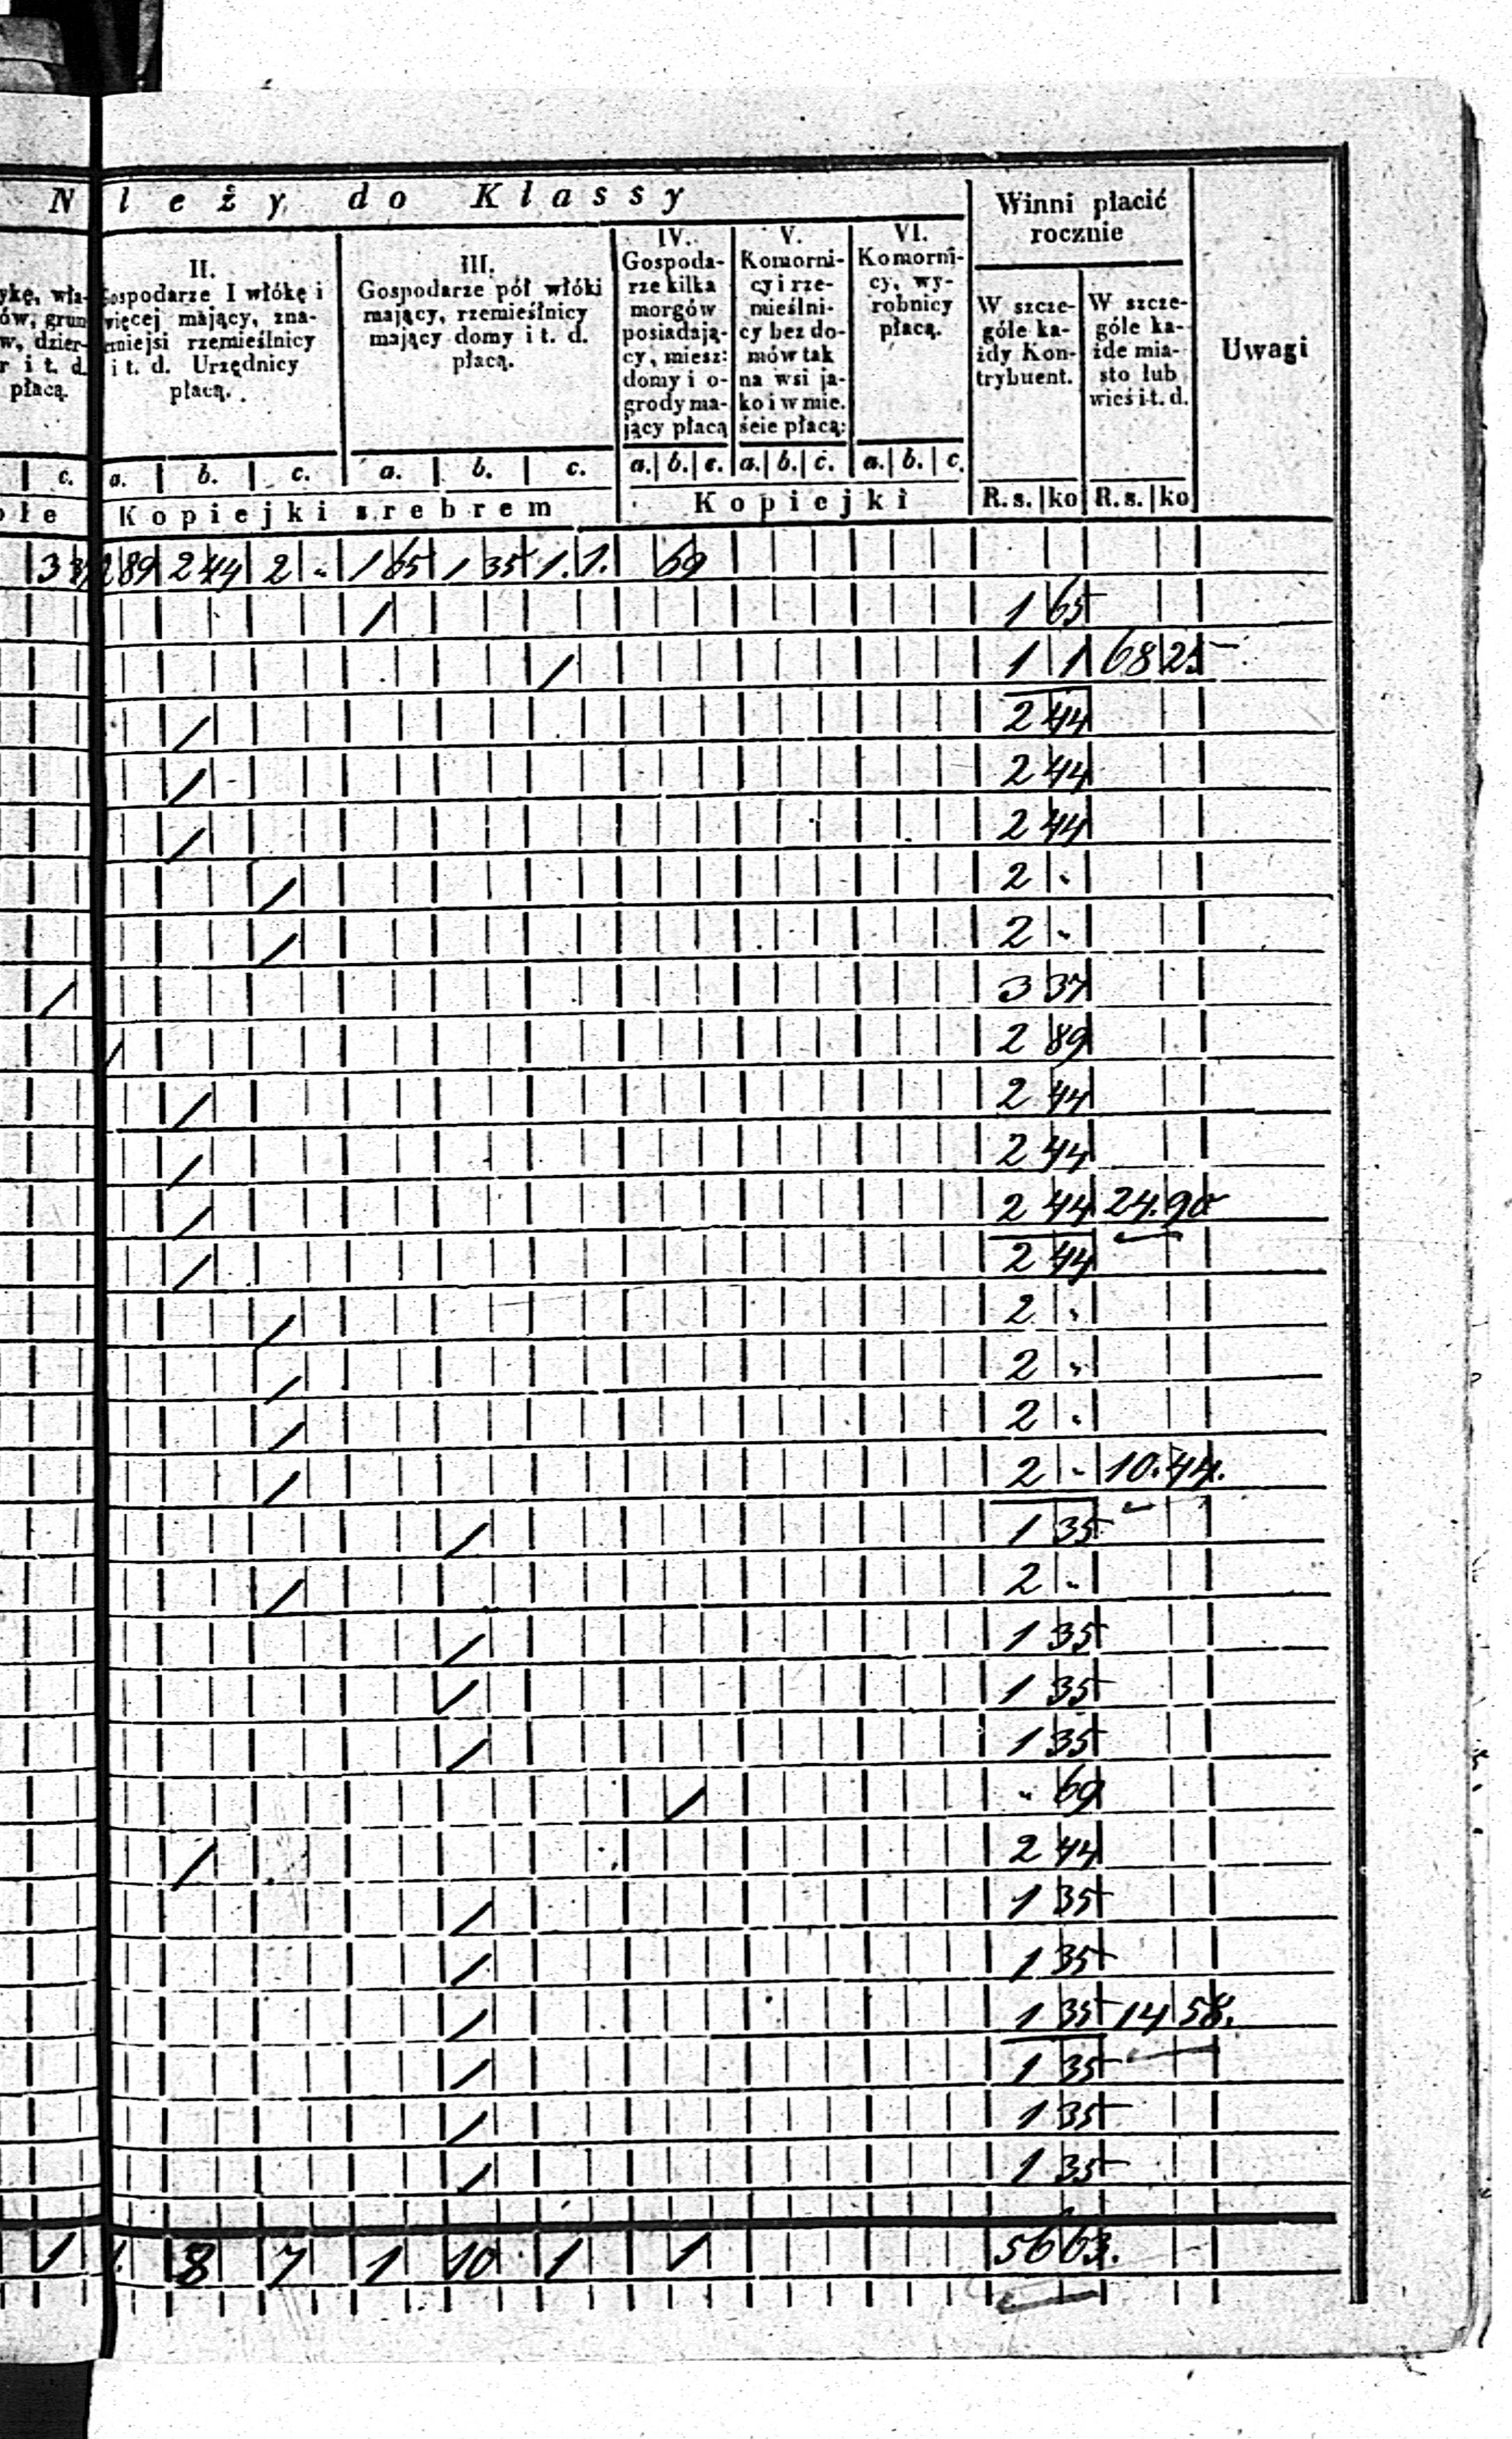 N leży do Klassy
Winni płacić rocznie
Uwagi
ykę, wła-
ów, grun
w, dzier-
r i t. d.
płacą.
II.
Gospodarze I włókę i
więcej mający, zna-
czniejsi rzemieślnicy
i t. d. Urzędnicy
płacą.
III.
Gospodarze pół włóki
mający, rzemieślnicy
mający domy i t. d.
płacą.
IV.
Gospoda-
rze kilka
morgów
posiadają-
cy, miesz:
domy i o-
grody ma-
jący płacą
V.
Komorni-
cy i rze-
mieślni-
cy bez do-
mów tak
na wsi ja-
ko i w mie.
ście płacą:
VI.
Komorni-
cy, wy-
robnicy
płacą.
W szcze-
góle ka-
żdy Kon-
trybuent.
W szcze-
góle ka-
żde mia-
sto lub
wieś i t. d.
c. a. b. c. a. b. c. a. b. c. a. b. c. a. b. c.
ołe Kopiejki srebrem Kopiejki R. s. ko R. s. ko
3 37 2 89 2 44 2 - 1 65 1 35 1. 1. 69
/ 1 65
/ 1 1 68 25
/ 2 44
/ 2 44
/ 2 44
/ 2 -
/ 2 -
/ 3 37
/ 2 89
/ 2 44
/ 2 44
/ 2 44 24.90
/ 2 44
/ 2 -
/ 2 -
/ 2 -
/ 2 - 10.44.
/ 1 35
/ 2 -
/ 1 35
/ 1 35
/ 1 35
/ - 69
/ 2 44
/ 1 35
/ 1 35
/ 1 35 14 58.
/ 1 35
/ 1 35
/ 1 35
1 1. 8 7 1 10 1 1 56 63.